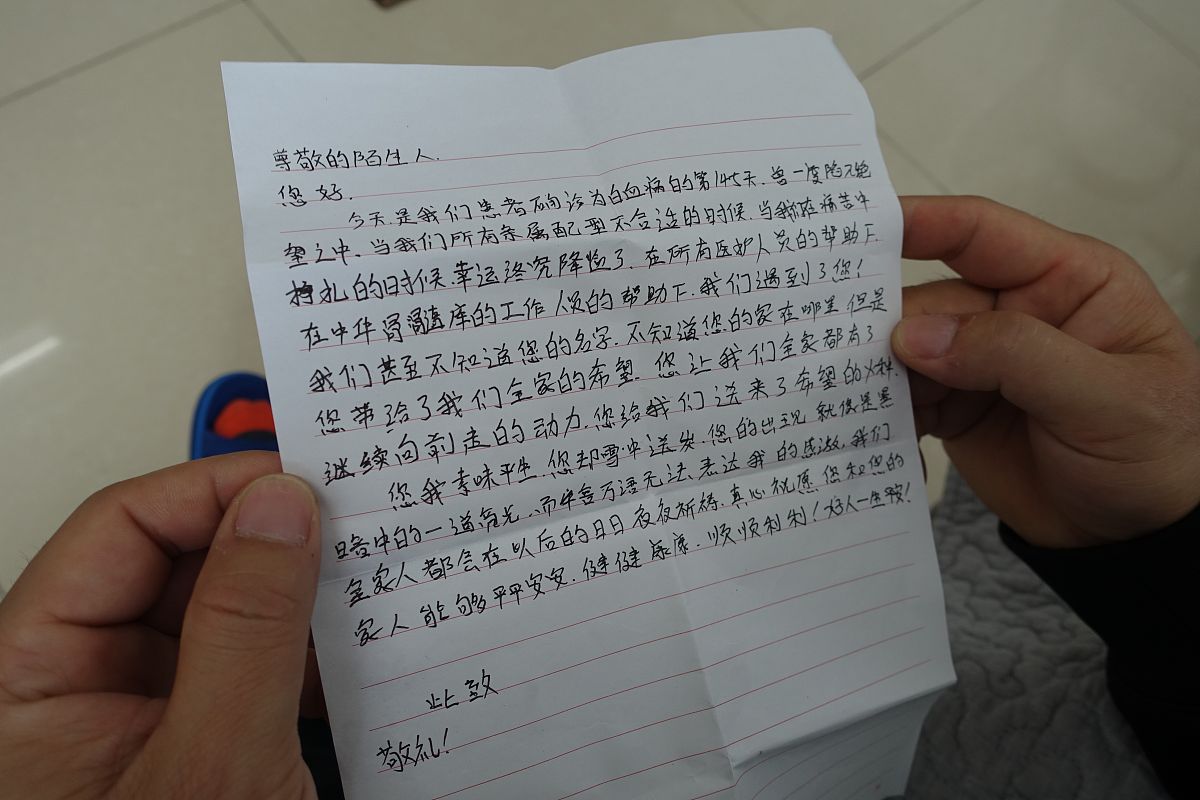 尊敬的陌生人.
您好.
今天是我们患者确诊为白血病的第145天.曾一度陷入绝
望之中、当我们所有亲属配型不合适的时候.当我们在痛苦中
挣扎的时候.幸运终究降临了.在所有医护人员的帮助下.
在中华骨髓库的工作人员的帮助下.我们遇到了您!
我们甚至不知道您的名字.不知道您的家在哪里.但是
您带给了我们全家的希望.您让我们全家都有了
继续向前走的动力.您给我们送来了希望的火种.
您我素昧平生.您却雪中送炭.您的出现就像是黑
暗中的一道亮光.而千言万语无法表达我的感激,我们
全家人都会在以后的日日夜夜祈祷.真心祝愿您和您的
家人能够平平安安.健健康康.顺顺利利!好人一生平安!
此致
敬礼!